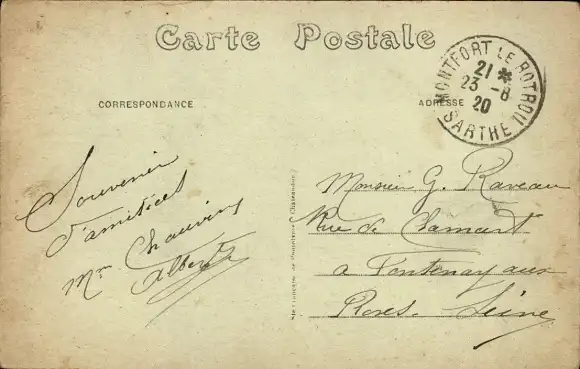 Carte Postale
CORRESPONDANCE
ADRESSE
MONTFORT LE ROTROU
21 *
23 - 8
20
SARTHE
Souvenir
d'amitiés
Mme Chauvin
Albert
Monsieur G. Raveau
Rue de Clamart
a Fontenay aux
Roses. Seine